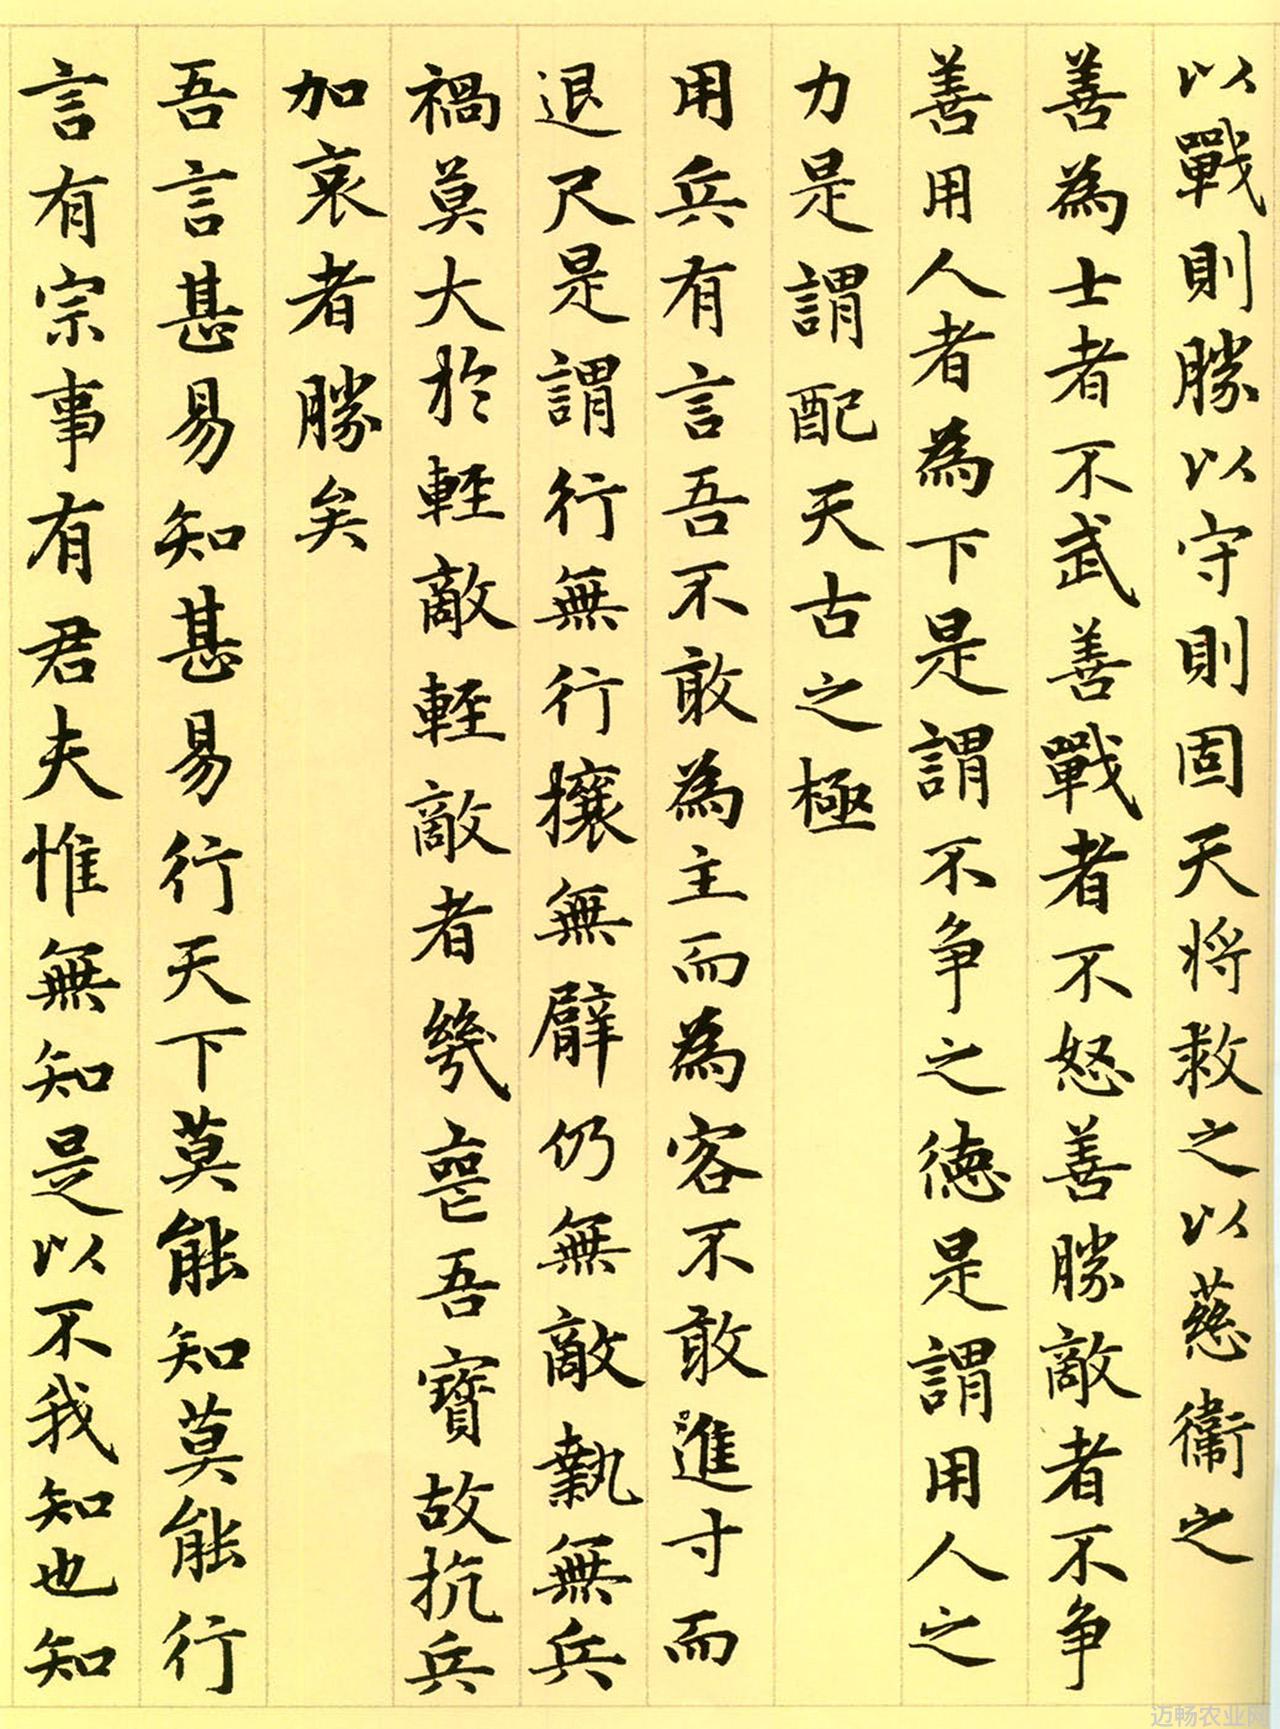 以戰則勝以守則固天將救之以慈衛之
善為士者不武善戰者不怒善勝敵者不争
善用人者為下是謂不争之德是謂用人之
力是謂配天古之極
用兵有言吾不敢為主而為客不敢進寸而
退尺是謂行無行攘無臂仍無敵執無兵
禍莫大於輕敵輕敵者幾喪吾寶故抗兵
加哀者勝矣
吾言甚易知甚易行天下莫能知莫能行
言有宗事有君夫惟無知是以不我知也知
迈畅农业网